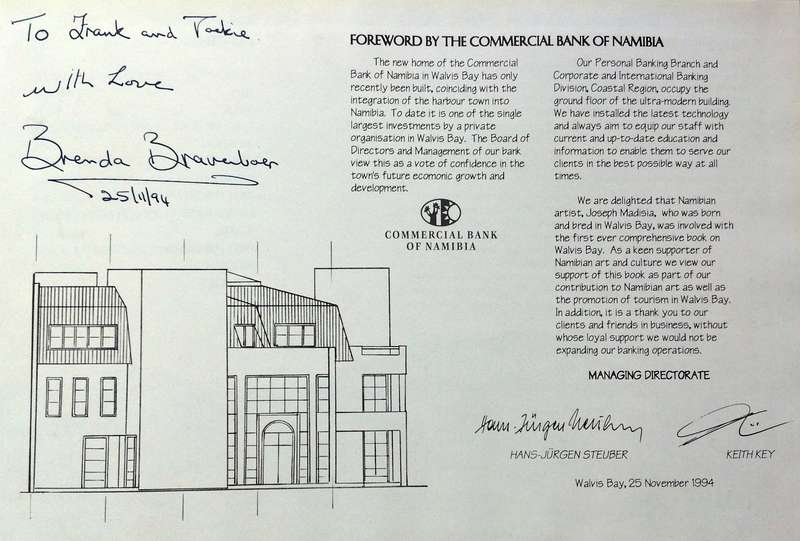 To Frank and Tackie
with Love
Brenda Bravenboer
25/11/94
FOREWORD BY THE COMMERCIAL BANK OF NAMIBIA
The new home of the Commercial
Bank of Namibia in Walvis Bay has only
recently been built, coinciding with the
integration of the harbour town into
Namibia. To date it is one of the single
largest investments by a private
organisation in Walvis Bay. The Board of
Directors and Management of our bank
view this as a vote of confidence in the
town's future economic growth and
development.
COMMERCIAL BANK
OF NAMIBIA
Our Personal Banking Branch and
Corporate and International Banking
Division, Coastal Region, occupy the
ground floor of the ultra-modern building.
We have installed the latest technology
and always aim to equip our staff with
current and up-to-date education and
information to enable them to serve our
clients in the best possible way at all
times.
We are delighted that Namibian
artist, Joseph Madisia, who was born
and bred in Walvis Bay, was involved with
the first ever comprehensive book on
Walvis Bay. As a keen supporter of
Namibian art and culture we view our
support of this book as part of our
contribution to Namibian art as well as
the promotion of tourism in Walvis Bay.
In addition, it is a thank you to our
clients and friends in business, without
whose loyal support we would not be
expanding our banking operations.
MANAGING DIRECTORATE
Hans-Jürgen
HANS-JÜRGEN STEUBER
KEITH KEY
Walvis Bay, 25 November 1994